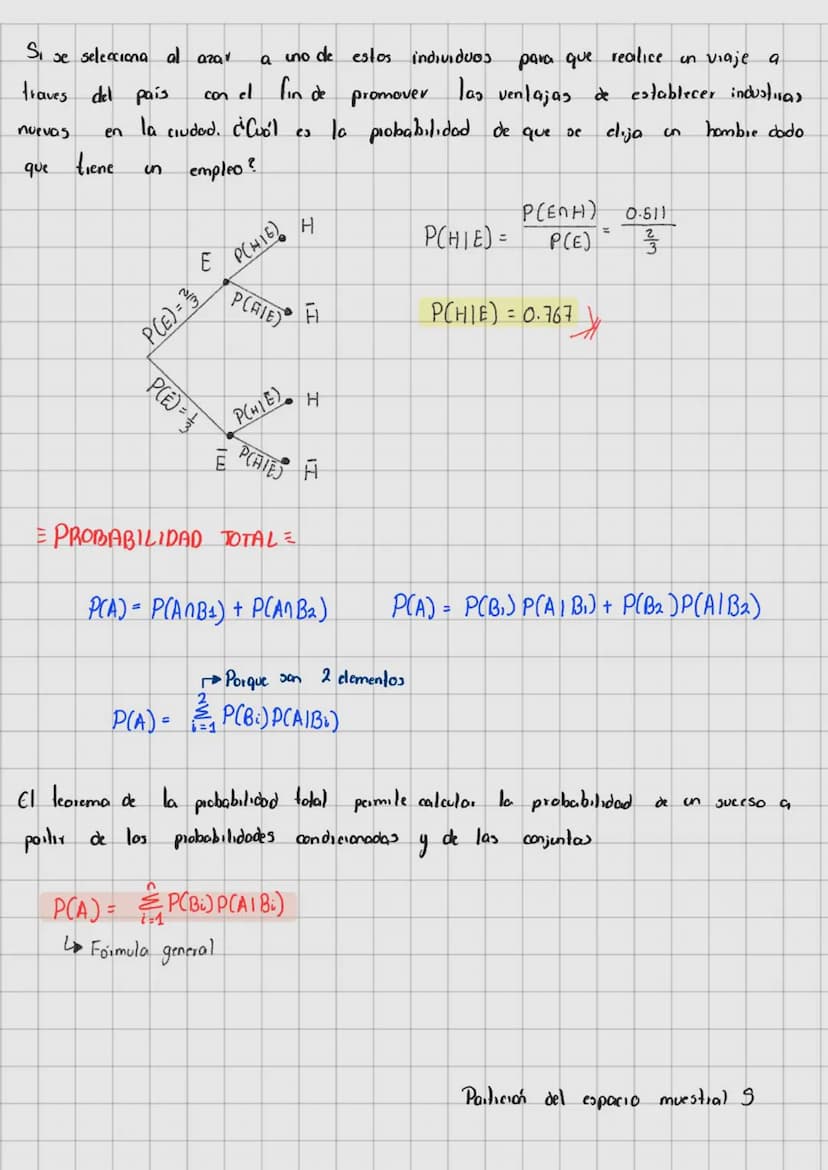 Si se selecciona al azar a uno de estos individuos para que realice un viaje a
traves del país con el fin de promover las ventajas de establecer industrias
nuevas en la ciudad. ¿Cuál es la probabilidad de que se elija un hombre dado
que tiene un empleo?
E P(H|E) H
P(E) = 2/3
P(H̅|E) H̅
P(E̅) = 1/3
P(H|E̅) H
E̅ P(H̅|E̅) H̅
P(H|E) = P(E∩H) / P(E) = 0.511 / (2/3)
P(H|E) = 0.767
PROBABILIDAD TOTAL
P(A) = P(A∩B1) + P(A∩B2) P(A) = P(B1) P(A|B1) + P(B2) P(A|B2)
↱ Porque son 2 elementos
P(A) = Σ_{i=1}^{2} P(Bi) P(A|Bi)
El teorema de la probabilidad total permite calcular la probabilidad de un suceso a
partir de las probabilidades condicionadas y de las conjuntas
P(A) = Σ_{i=1}^{n} P(Bi) P(A|Bi)
↳ Fórmula general
Partición del espacio muestral S